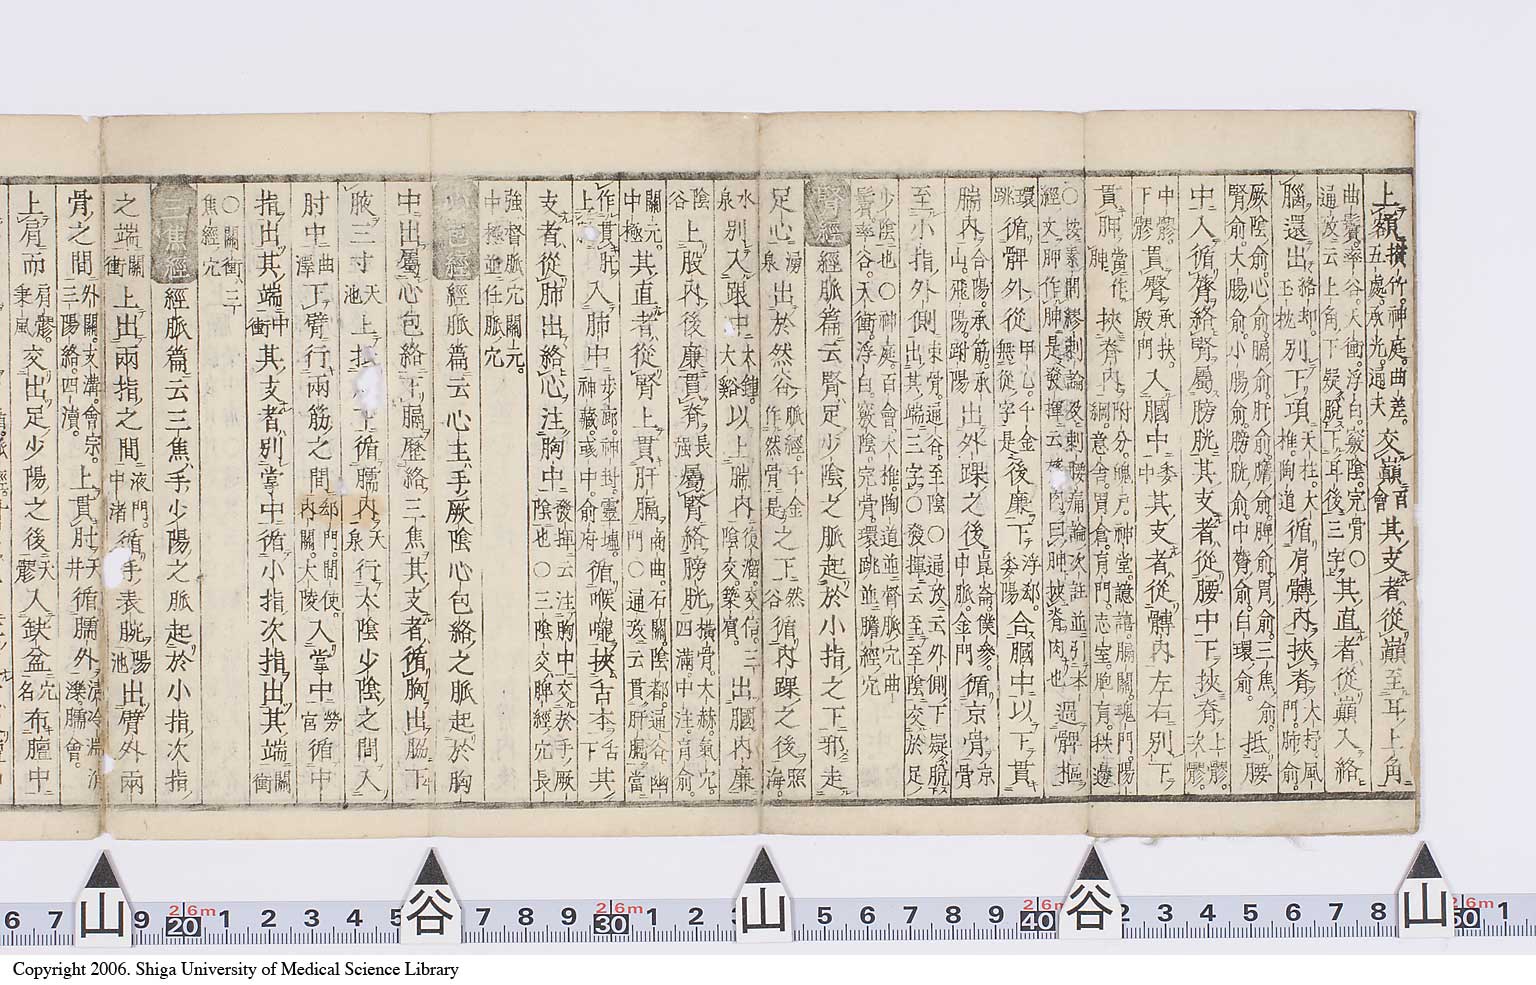 上額攅竹。神庭。曲差。五處。承光。通天交巓百會其支者從巓至耳上角
曲鬢。率谷天衝。浮白。竅陰。完骨○通攷云上角下疑脫下耳後三字其直者從巓入絡
腦還出絡却。玉枕別下項天柱。大椎。陶道循肩髆内挾脊大杼。風門。肺俞。
厥陰俞。心俞。膈俞。肝俞。膽俞。脾俞。胃俞。三焦俞。腎俞。大腸俞。小腸俞。膀胱俞。中膂俞。白環俞。抵腰
中入循膂絡腎屬膀胱其支者從腰中下挾脊上髎。次髎。
中髎。下髎貫臀承扶。殷門入膕中委中其支者從髆内左右別下
貫胛當作胂挾脊内附分。魄戶。神堂。譩譆。膈關。魂門。陽綱。意舍。胃倉。肓門。志室。胞肓。秩邊
○按素問繆刺論及刺腰痛論次註並引本經文胛作胂是發揮云肉曰胂挾脊肉也過髀樞
環跳循髀外從甲乙。千金無從字是後廉下浮郄。委陽合膕中以下貫
腨内合陽。承筋。承山。飛陽。跗陽出外踝之後崑崙。僕參。申脈。金門循京骨京骨
至小指外側束骨。通谷。至陰○通攷云外側下疑脫出其端三字○發揮云至至陰交於足
少陰也○神庭。百會大椎。陶道並督脈穴曲鬢率谷。天衝。浮白。竅陰。完骨。環跳並膽經穴
腎經經脈篇云腎足少陰之脈起於小指之下邪走
足心湧泉出於然谷脈經。千金作然骨是之下然谷循内踝之後照海。
水泉別入跟中大鍾。大谿以上腨内復溜。交信。三陰交。築賓。出膕内廉
陰谷上股内後廉貫脊長強屬腎絡膀胱橫骨。大赫。氣穴。四滿。中注。肓俞。
關元。中極其直者從腎上貫肝膈商曲。石關陰都。通谷。幽門○通攷云貫肝膈當
作貫肝上膈入肺中步廊。神封。靈墟。神藏。彧中。俞府循喉嚨挾舌本舌下其
支者從肺出絡心注胸中發揮云注胸中交於手厥陰也○三陰交。脾經穴長
強督脈穴關元。中極並任脈穴
心包經經脈篇云心主手厥陰心包絡之脈起於胸
中出屬心包絡下膈歷絡三焦其支者循胸出脇下
腋三寸天池上抵下循臑内天泉行太陰少陰之間入
肘中曲澤下臂行兩筋之間郄門。間使。内關。大陵入掌中勞宮循中
指出其端中衝其支者別掌中循小指次指出其端關衝
○關衝三焦經穴
三焦經經脈篇云三焦手少陽之脈起於小指次指
之端關衝上出兩指之間液門。中渚循手表腕陽池出臂外兩
骨之間外關。支溝。會宗。三陽絡。四瀆。上貫肘天井循臑外清冷淵。消濼。臑會。
上肩而肩髎。秉風交出足少陽之後天髎入缺盆布膻中
6 7 9 20 1 2 3 4 5 7 8 9 30 1 2 3 5 6 7 8 9 40 2 3 4 5 6 7 8 50 1
26m 26m 26m 26m
山 谷 山 谷 山
Copyright 2006. Shiga University of Medical Science Library